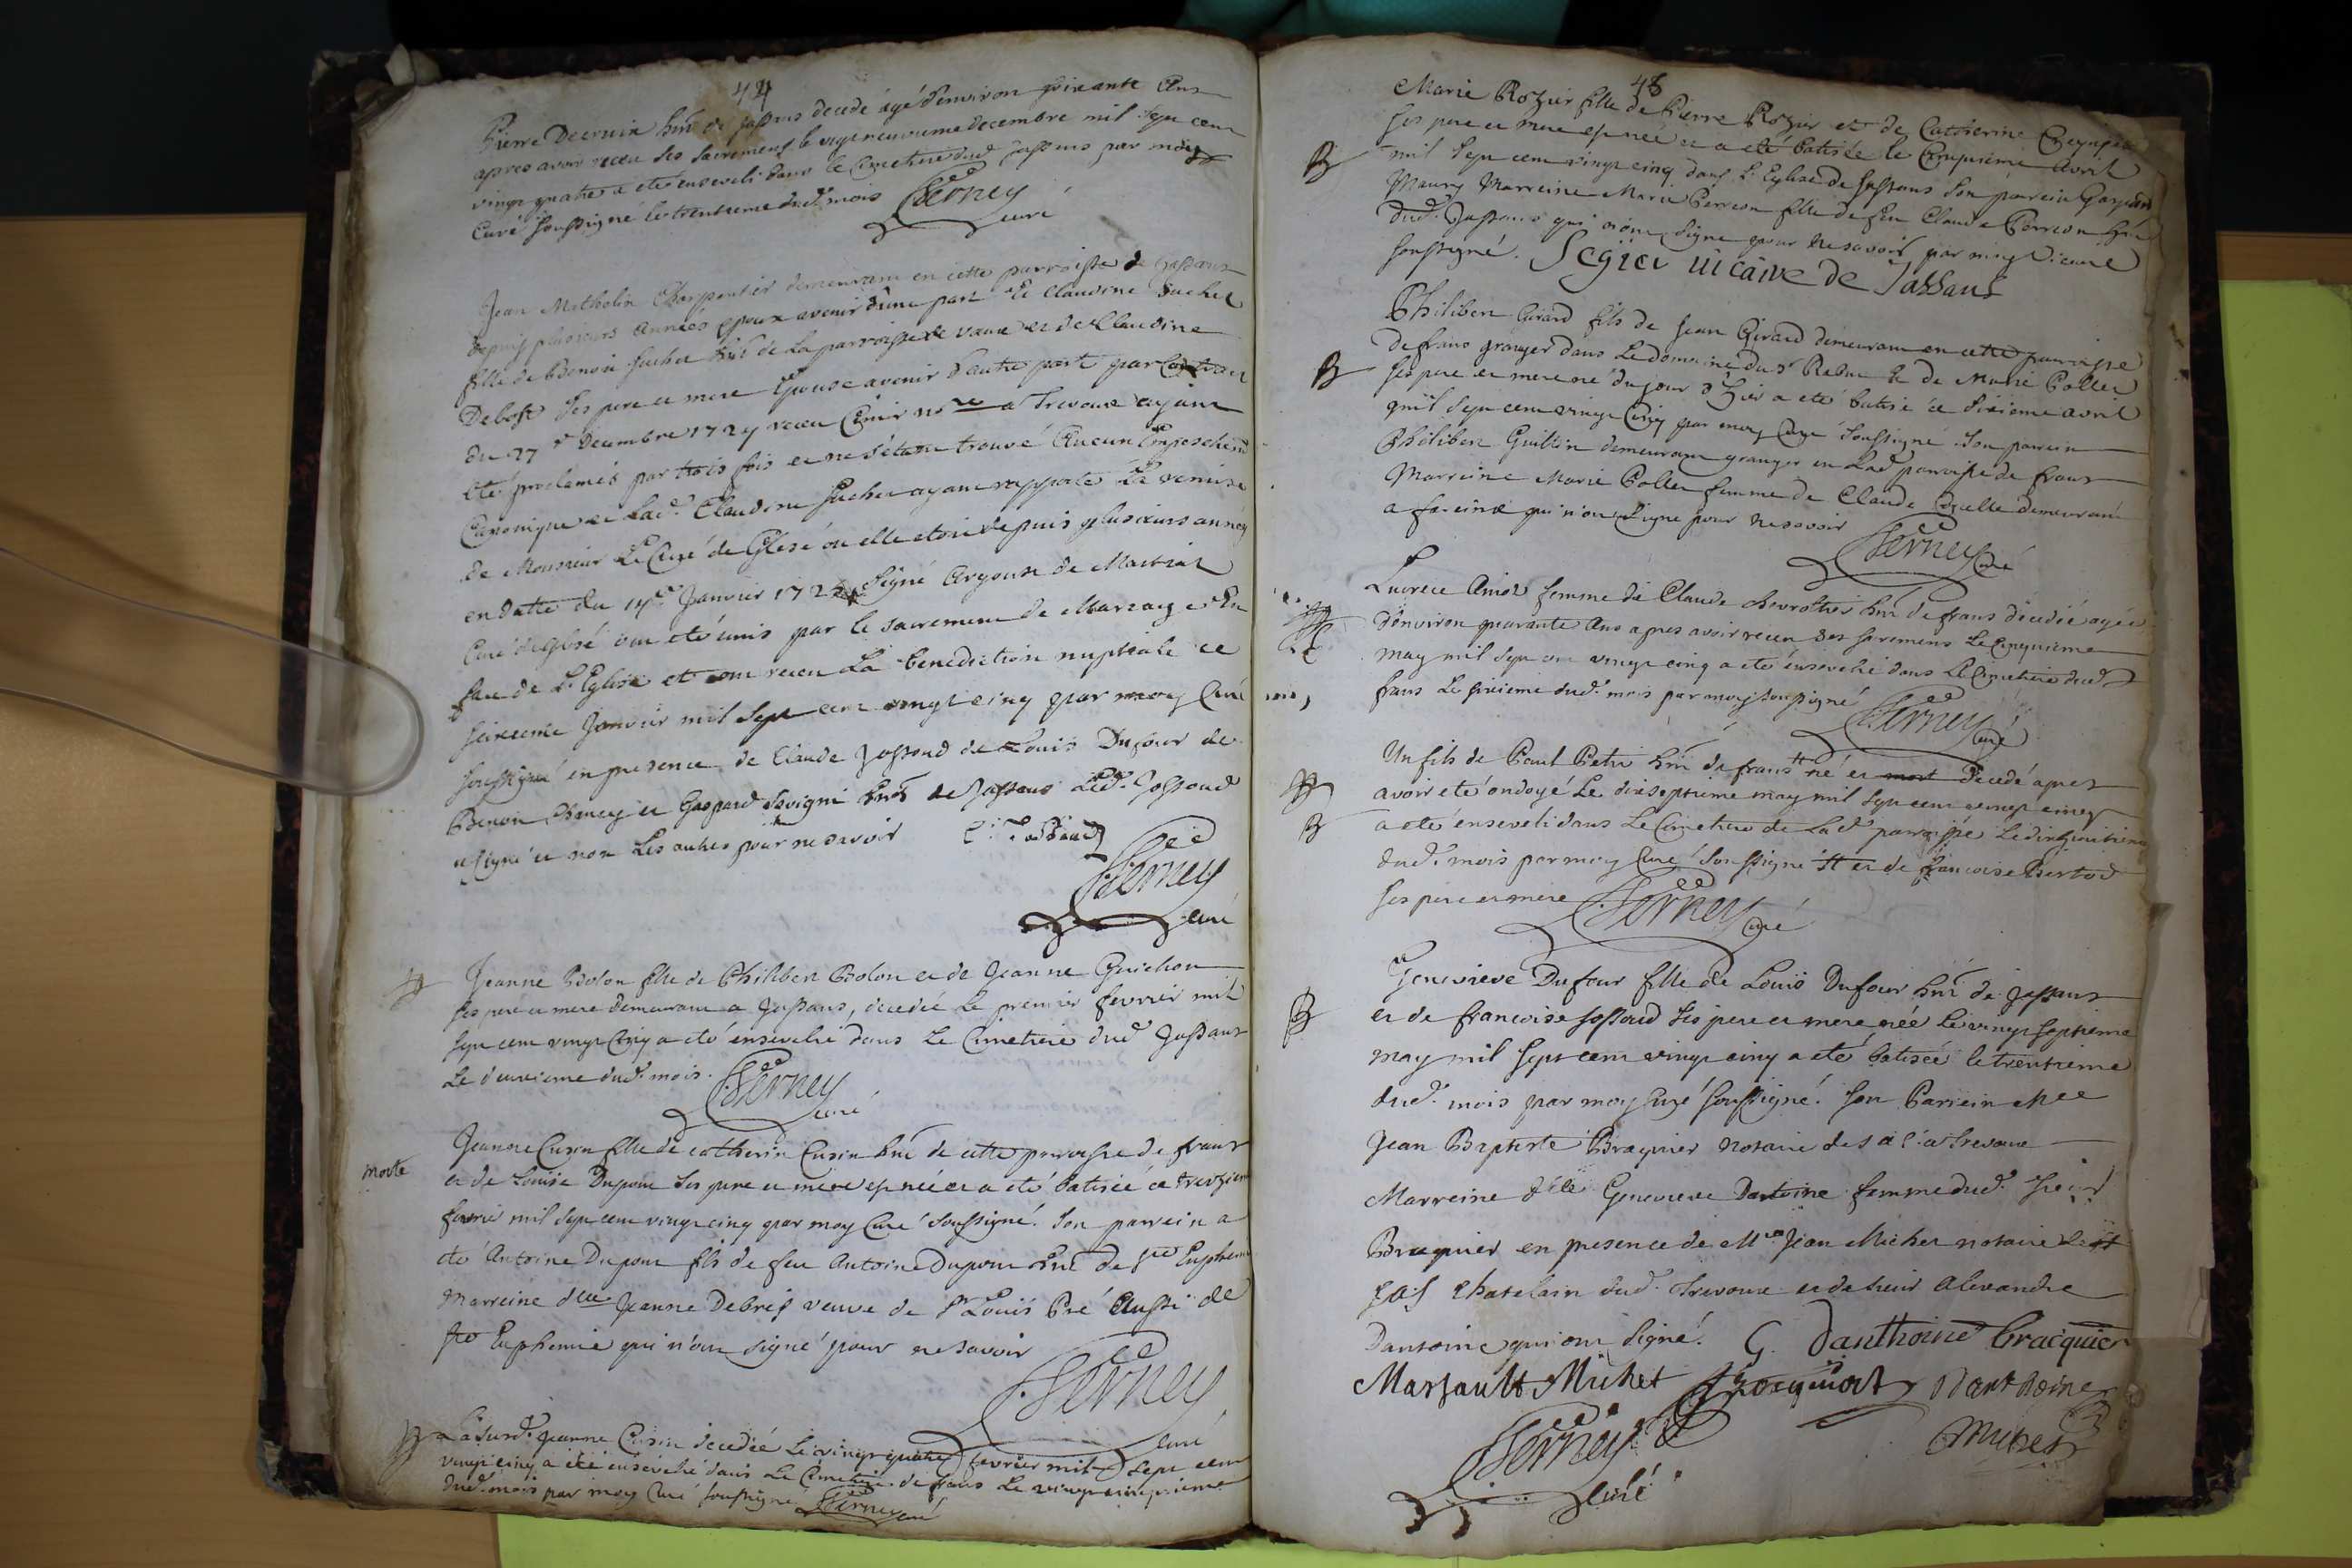 Pierre Decruix hnt de Jassans decedé agé d'environ soixante Ans
apres avoir receu ses sacremens le vingtneuvieme decembre mil sept cent
vingt quatre a eté enseveli dans le Cimetiere dud. Jassans par moy
Curé soussigné le trentieme dud. mois Perney
curé
Jean Matholin Charpentier demeurant en cette parroisse de Jassans
depuis plusieurs années epoux avenir d'une part Et Claudine Suchet
fille de Benoit Suchet hnt de la parroisse de vaux et de Claudine
Debost ses pere et mere Epouse avenir d'autre part par Contract
du 27e Decembre 1724 receu nore a Trevoux ayant
eté proclamés par trois fois et ne s'étant trouvé Aucun Empeschemt
Canonique et lad. Claudine Suchet ayant rapporté La remise
de Monsieur Le Curé de Gleisé ou elle etoit depuis plusieurs années
en datte du 14e Janvier 1725 Signé Argoux de Martial
Curé de Gleisé ont eté unis par le sacrement de Mariage En
face de L'Eglise et ont receu La benediction nuptiale ce
seizieme Janvier mil sept cent vingt cinq par moy Curé
soussigné en presence de Claude Jossand de Louis Dufour de
Benoit et Gaspard Savigni hnts de Jassans Led. Jossand
a signé et non Les autres pour ne savoir C. Jossand
Perney
curé
Jeanne Bolon fille de Philibert Bolon et de Jeanne Guichon
ses pere et mere demeurant a Jassans, decedée Le premier fevrier mil
sept cent vingt Cinq a eté ensevelie dans Le Cimetiere dud. Jassans
Le deuxieme dud. mois. Perney
curé
morte
Jeanne Cusin fille de Catherin Cusin hnt de cette parroisse de frans
et de Louise Dupont ses pere et mere est née et a eté batisée ce treizieme
fevrier mil sept cent vingt cinq par moy Curé soussigné. Son parrein a
eté Antoine Dupont fils de feu Antoine Dupont hnt de ste Euphemie
Marreine dlle Jeanne Debrej veuve de Sr Louis Pré Aussi de
ste Euphemie qui n'ont signé pour ne savoir
Perney
curé
Lasusd. Jeanne Cusin decedée Le vingt quatre fevrier mil sept cent
vingt cinq a été ensevelie dans Le Cimetiere de frans Le vingt cinquieme
dud. mois par moy Curé soussigné Perney curé
48
Marie Rozier fille de Pierre Rozier et de Catherine
ses pere et mere est née et a eté batisée le Cinquieme Avril
B
mil sept cent vingt cinq dans L'Eglise de Jassans son parrein Gaspard
Maury Marreine Marie Perreon fille de feu Claude Perreon hnt
dud. Jassans qui n'ont signé pour ne savoir par moy vicaire
soussigné. Segier vicaire de Jassans
Philibert Girard fils de Jean Girard demeurant en cette parroisse
de frans granger dans Le domaine du Sr et de Marie Pollet
B
ses pere et mere né du jour d'hier a eté batisé ce sixieme avril
mil sept cent vingt Cinq par moy Curé soussigné. Son parrein
Philibert Guillin demeurant granger en Lad. parroisse de frans
Marreine Marie Pollet femme de Claude demeurant
a fareins qui n'ont signé pour ne savoir
Perney Curé
Lucrece Amiot femme de Claude hnt de frans decedée agée
d'environ quarante Ans apres avoir receu ses sacremens Le Cinquieme
may mil sept cent vingt cinq a eté ensevelie dans Le Cimetiere dud.
frans Le sixieme dud. mois par moy soussigné
Perney Curé
Un fils de Paul Petri hnt de frans né et mort decedé apres
avoir eté ondoyé Le dixseptieme may mil sept cent vingt cinq
B
a eté enseveli dans Le Cimetiere de Lad. parroisse Le dixhuitieme
dud. mois par moy Curé soussigné et de francoise Bertod
ses pere et mere Perney Curé
Genevieve Dufour fille de Louis Dufour hnt de Jassans
et de francoise Jossand ses pere et mere née Le vingt septieme
B
may mil sept cent vingt cinq a eté batisée le trentieme
dud. mois par moy Curé soussigné. Son Parrein Mre
Jean Baptiste Braquier notaire de s a s a Trevoux
Marreine dlle Genevieve Dantoine femme dud. sieur
Braquier en presence de Mre Jean Michet notaire de s t
s a s Chatelain dud. Trevoux et de sieur Alexandre
Dantoine qui ont signé. G. Danthoine bracquier
Marsault Michet Danthoine
Perney
curé